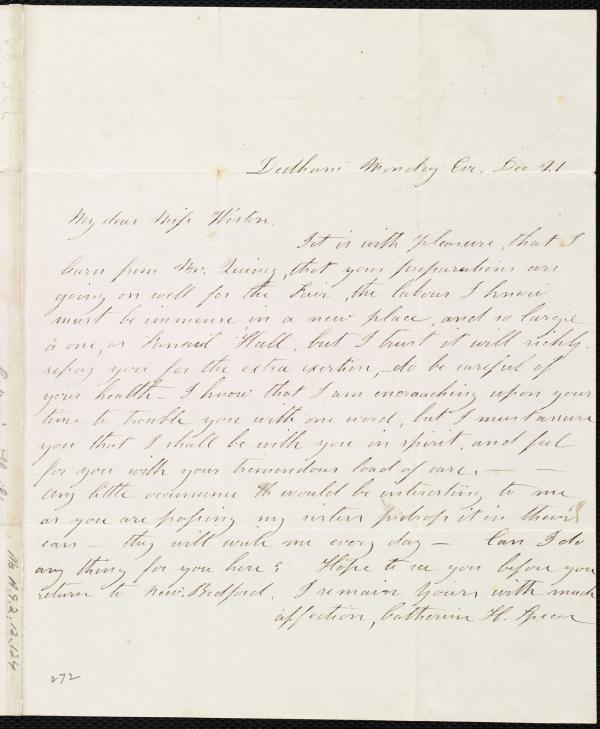 Dedham Monday Eve, Dec 21
My dear Miss Weston.
Tet is with pleasure, that I
learn from Mr. Quincy, that your preparations are
going on well for the Fair, the labour I know
must be immense in a new place, and so large
a one, as Fanuil Hall, but I trust it will richly
repay you for the extra exertion,—do be careful of
your health— I know that I am encroaching upon your
time to trouble you with one word, but I must assure
you that I shall be with you in spirit, and feel
for you with your tremendous load of care. — —
any little occurrence would be interesting to me
as you are passing my sisters pr drop it in their
ears — they will write me every day — Can I do
any thing for you here? Hope to see you before you
return to New. Bedford. I remain Yours with much
affection, Catherine H. Spear
272
Ms. A.9.2.12.124